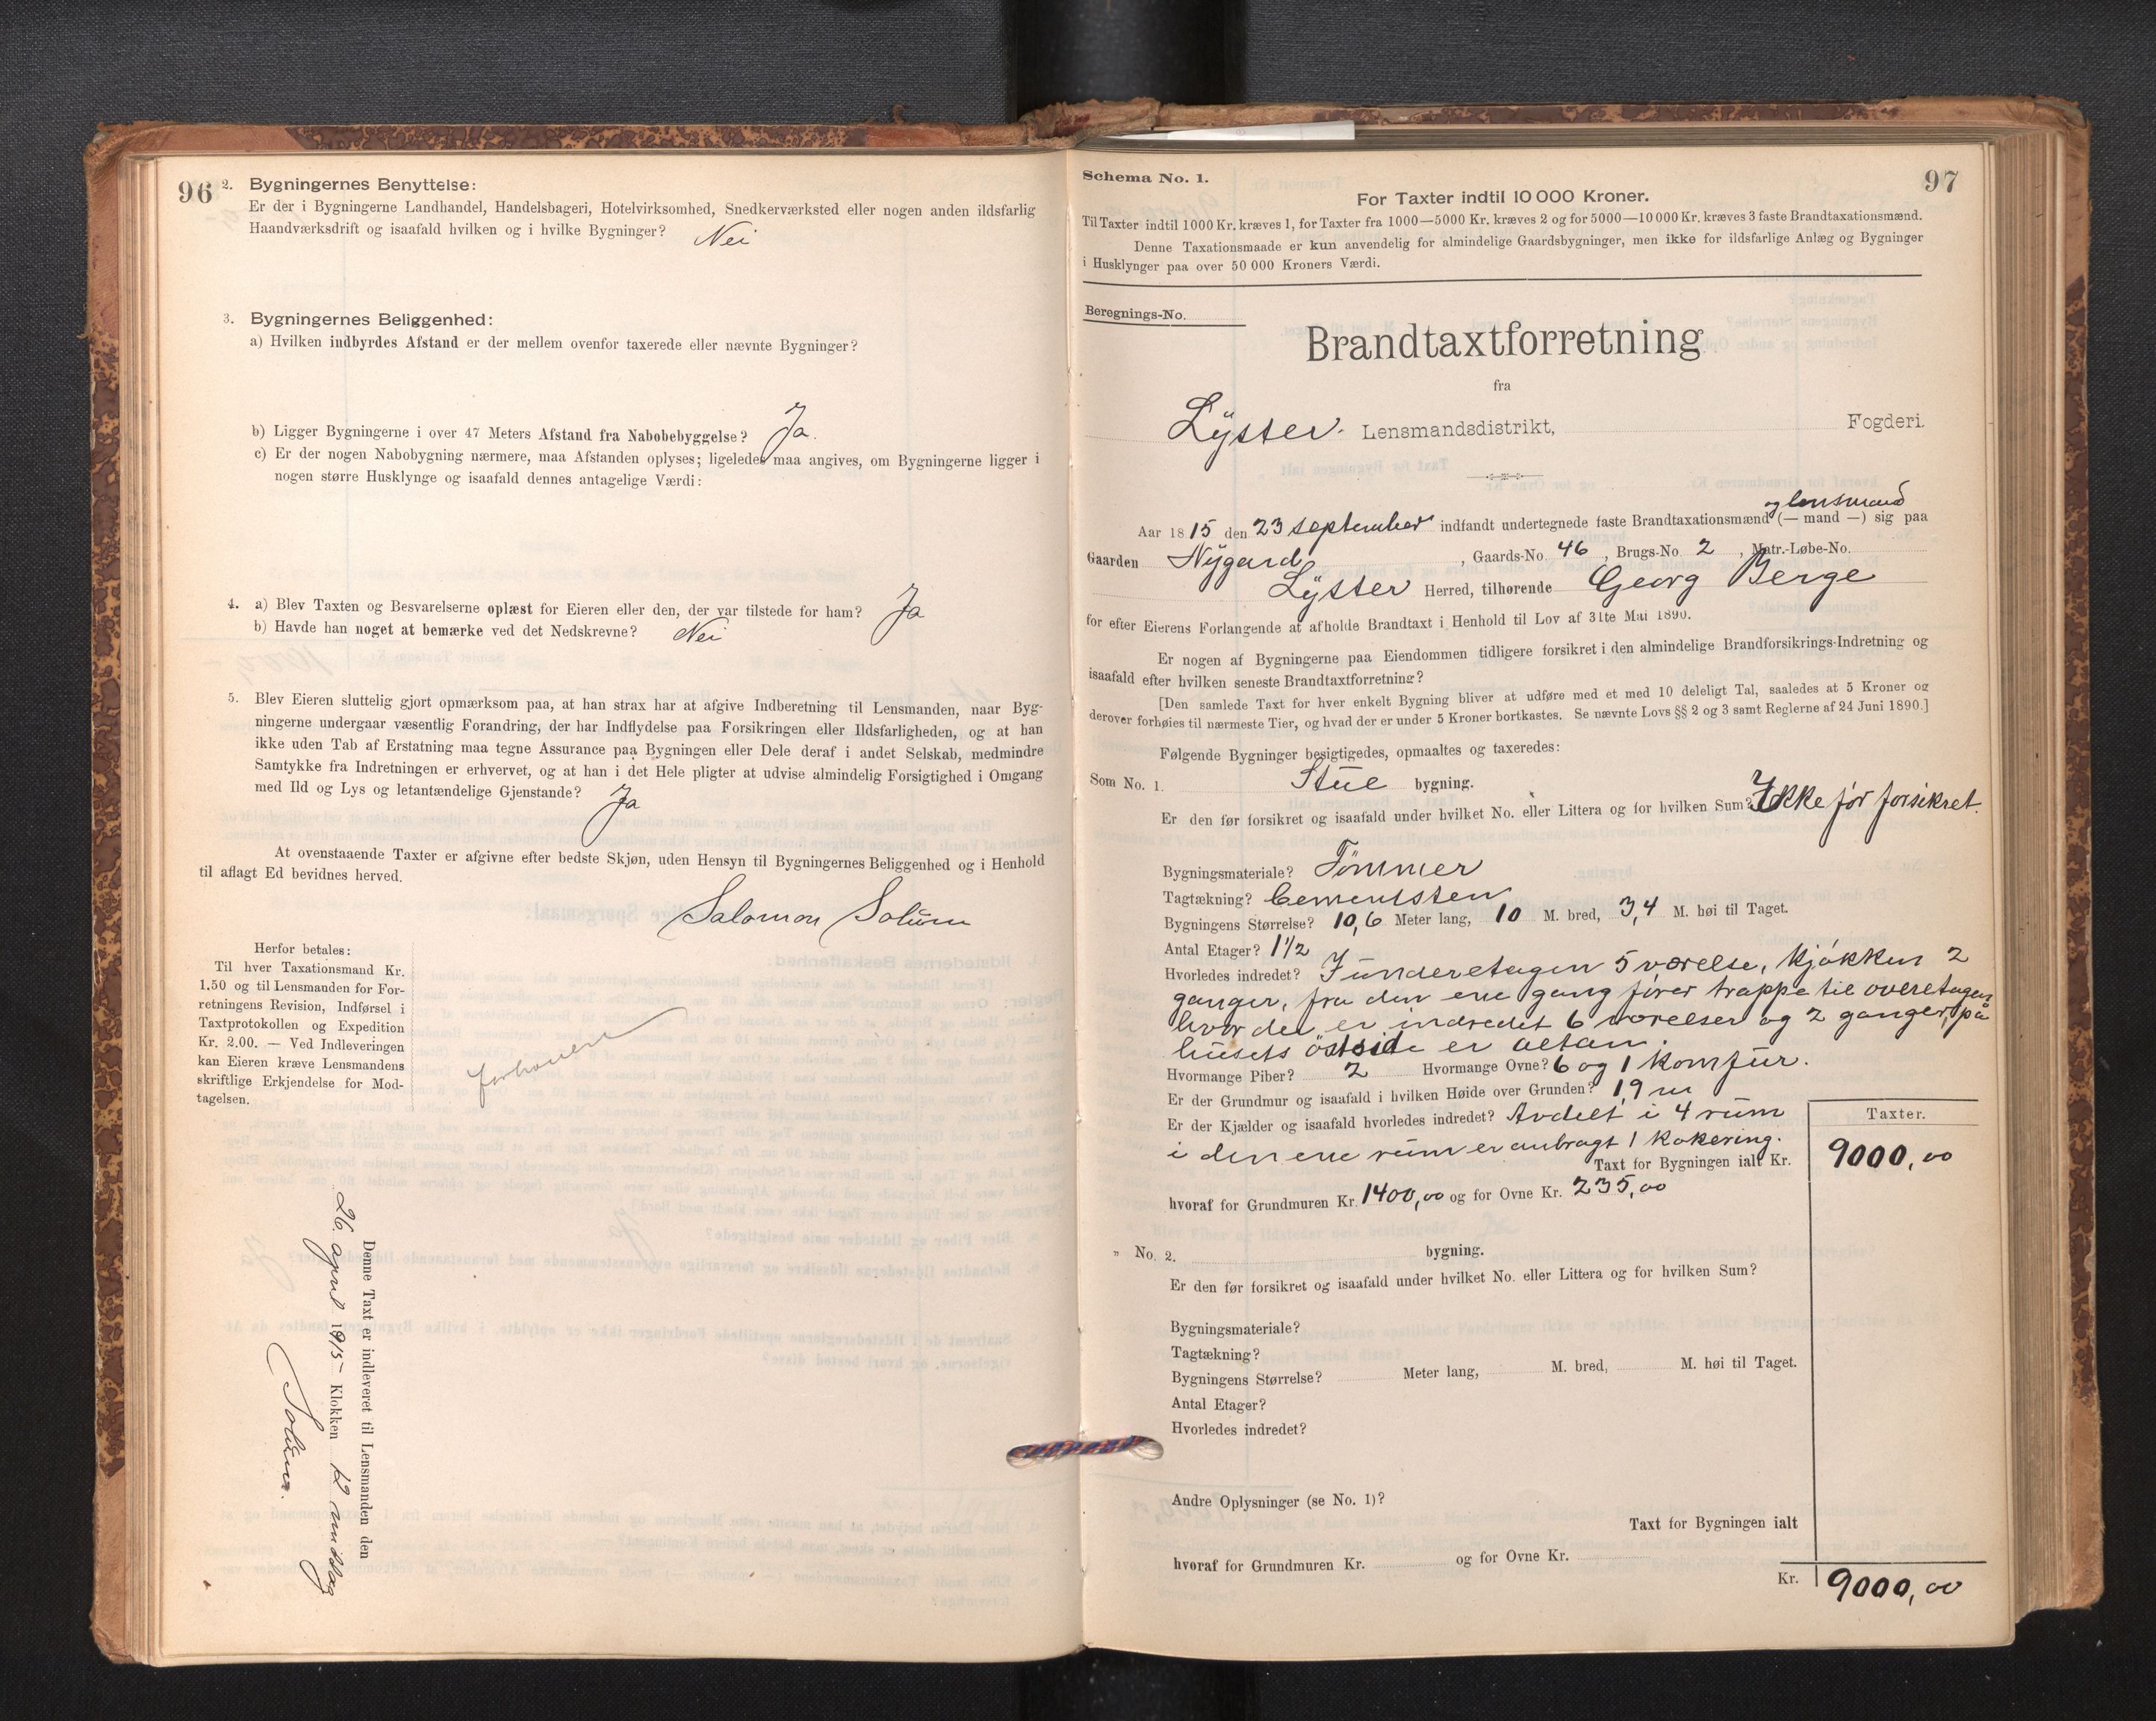 96
2. Bygningernes Benyttelse:
Er der i Bygningerne Landhandel, Handelsbageri, Hotelvirksomhed, Snedkerværksted eller nogen anden ildsfarlig
Haandværksdrift og isaafald hvilken og i hvilke Bygninger? Nei
3. Bygningernes Beliggenhed:
a) Hvilken indbyrdes Afstand er der mellem ovenfor taxerede eller nævnte Bygninger?
b) Ligger Bygningerne i over 47 Meters Afstand fra Nabobebyggelse? Ja.
c) Er der nogen Nabobygning nærmere, maa Afstanden oplyses; ligeledes maa angives, om Bygningerne ligger i
nogen større Husklynge og isaafald dennes antagelige Værdi:
4. a) Blev Taxten og Besvarelserne oplæst for Eieren eller den, der var tilstede for ham? Ja
b) Havde han noget at bemærke ved det Nedskrevne? Nei
5. Blev Eieren sluttelig gjort opmærksom paa, at han strax har at afgive Indberetning til Lensmanden, naar Byg-
ningerne undergaar væsentlig Forandring, der har Indflydelse paa Forsikringen eller Ildsfarligheden, og at han
ikke uden Tab af Erstatning maa tegne Assurance paa Bygningen eller Dele deraf i andet Selskab, medmindre
Samtykke fra Indretningen er erhvervet, og at han i det Hele pligter at udvise almindelig Forsigtighed i Omgang
med Ild og Lys og letantændelige Gjenstande? Ja
At ovenstaaende Taxter er afgivne efter bedste Skjøn, uden Hensyn til Bygningernes Beliggenhed og i Henhold
til aflagt Ed bevidnes herved.
Salomon Solum
Herfor betales:
Til hver Taxationsmand Kr.
1.50 og til Lensmanden for For-
retningens Revision, Indførsel i
Taxtprotokollen og Expedition
Kr. 2.00. — Ved Indleveringen
kan Eieren kræve Lensmandens
skriftlige Erkjendelse for Mod-
tagelsen.
Denne Taxt er indleveret til Lensmanden den
26 april 1915 Klokken 12 middag
Solum.
97
Schema No. 1.
For Taxter indtil 10 000 Kroner.
Til Taxter indtil 1000 Kr. kræves 1, for Taxter fra 1000—5000 Kr. kræves 2 og for 5000—10 000 Kr. kræves 3 faste Brandtaxationsmænd.
Denne Taxationsmaade er kun anvendelig for almindelige Gaardsbygninger, men ikke for ildsfarlige Anlæg og Bygninger
i Husklynger paa over 50 000 Kroners Værdi.
Beregnings-No.
Brandtaxtforretning
fra
Lyster Lensmandsdistrikt, Fogderi.
og lensmand
Aar 18 15 den 23 september indfandt undertegnede faste Brandtaxationsmænd (— mand —) sig paa
Gaarden Nygard, Gaards-No. 46, Brugs-No. 2, Matr.-Løbe-No.
Lyster Herred, tilhørende Georg Berge
for efter Eierens Forlangende at afholde Brandtaxt i Henhold til Lov af 31te Mai 1890.
Er nogen af Bygningerne paa Eiendommen tidligere forsikret i den almindelige Brandforsikrings-Indretning og
isaafald efter hvilken seneste Brandtaxtforretning?
[Den samlede Taxt for hver enkelt Bygning bliver at udføre med et med 10 deleligt Tal, saaledes at 5 Kroner og
derover forhøies til nærmeste Tier, og hvad der er under 5 Kroner bortkastes. Se nævnte Lovs §§ 2 og 3 samt Reglerne af 24 Juni 1890.]
Følgende Bygninger besigtigedes, opmaaltes og taxeredes:
Som No. 1. Stue bygning.
Er den før forsikret og isaafald under hvilket No. eller Littera og for hvilken Sum? Ikke før forsikret.
Bygningsmateriale? Tömmer
Tagtækning? Cementsten
Bygningens Størrelse? 10,6 Meter lang, 10 M. bred, 3,4 M. høi til Taget.
Antal Etager? 1½
Hvorledes indredet? I underetagen 5 værelse, kjøkken 2
ganger, fra den ene gang fører trappe til overetagen
hvor der er indredet 6 værelser og 2 ganger, på
husets östside er altan.
Hvormange Piber? 2 Hvormange Ovne? 6 og 1 komfur.
Er der Grundmur og isaafald i hvilken Høide over Grunden? 1,9 m
Er der Kjælder og isaafald hvorledes indredet? Avdelt i 4 rum
i den ene rum er anbragt 1 kokering.
Taxter.
Taxt for Bygningen ialt Kr. 9000,00
hvoraf for Grundmuren Kr. 1400,00 og for Ovne Kr. 235,00
„ No. 2. bygning.
Er den før forsikret og isaafald under hvilket No. eller Littera og for hvilken Sum?
Bygningsmateriale?
Tagtækning?
Bygningens Størrelse? Meter lang, M. bred, M. høi til Taget.
Antal Etager?
Hvorledes indredet?
Andre Oplysninger (se No. 1)?
Taxt for Bygningen ialt
hvoraf for Grundmuren Kr. og for Ovne Kr.
Kr. 9000,00